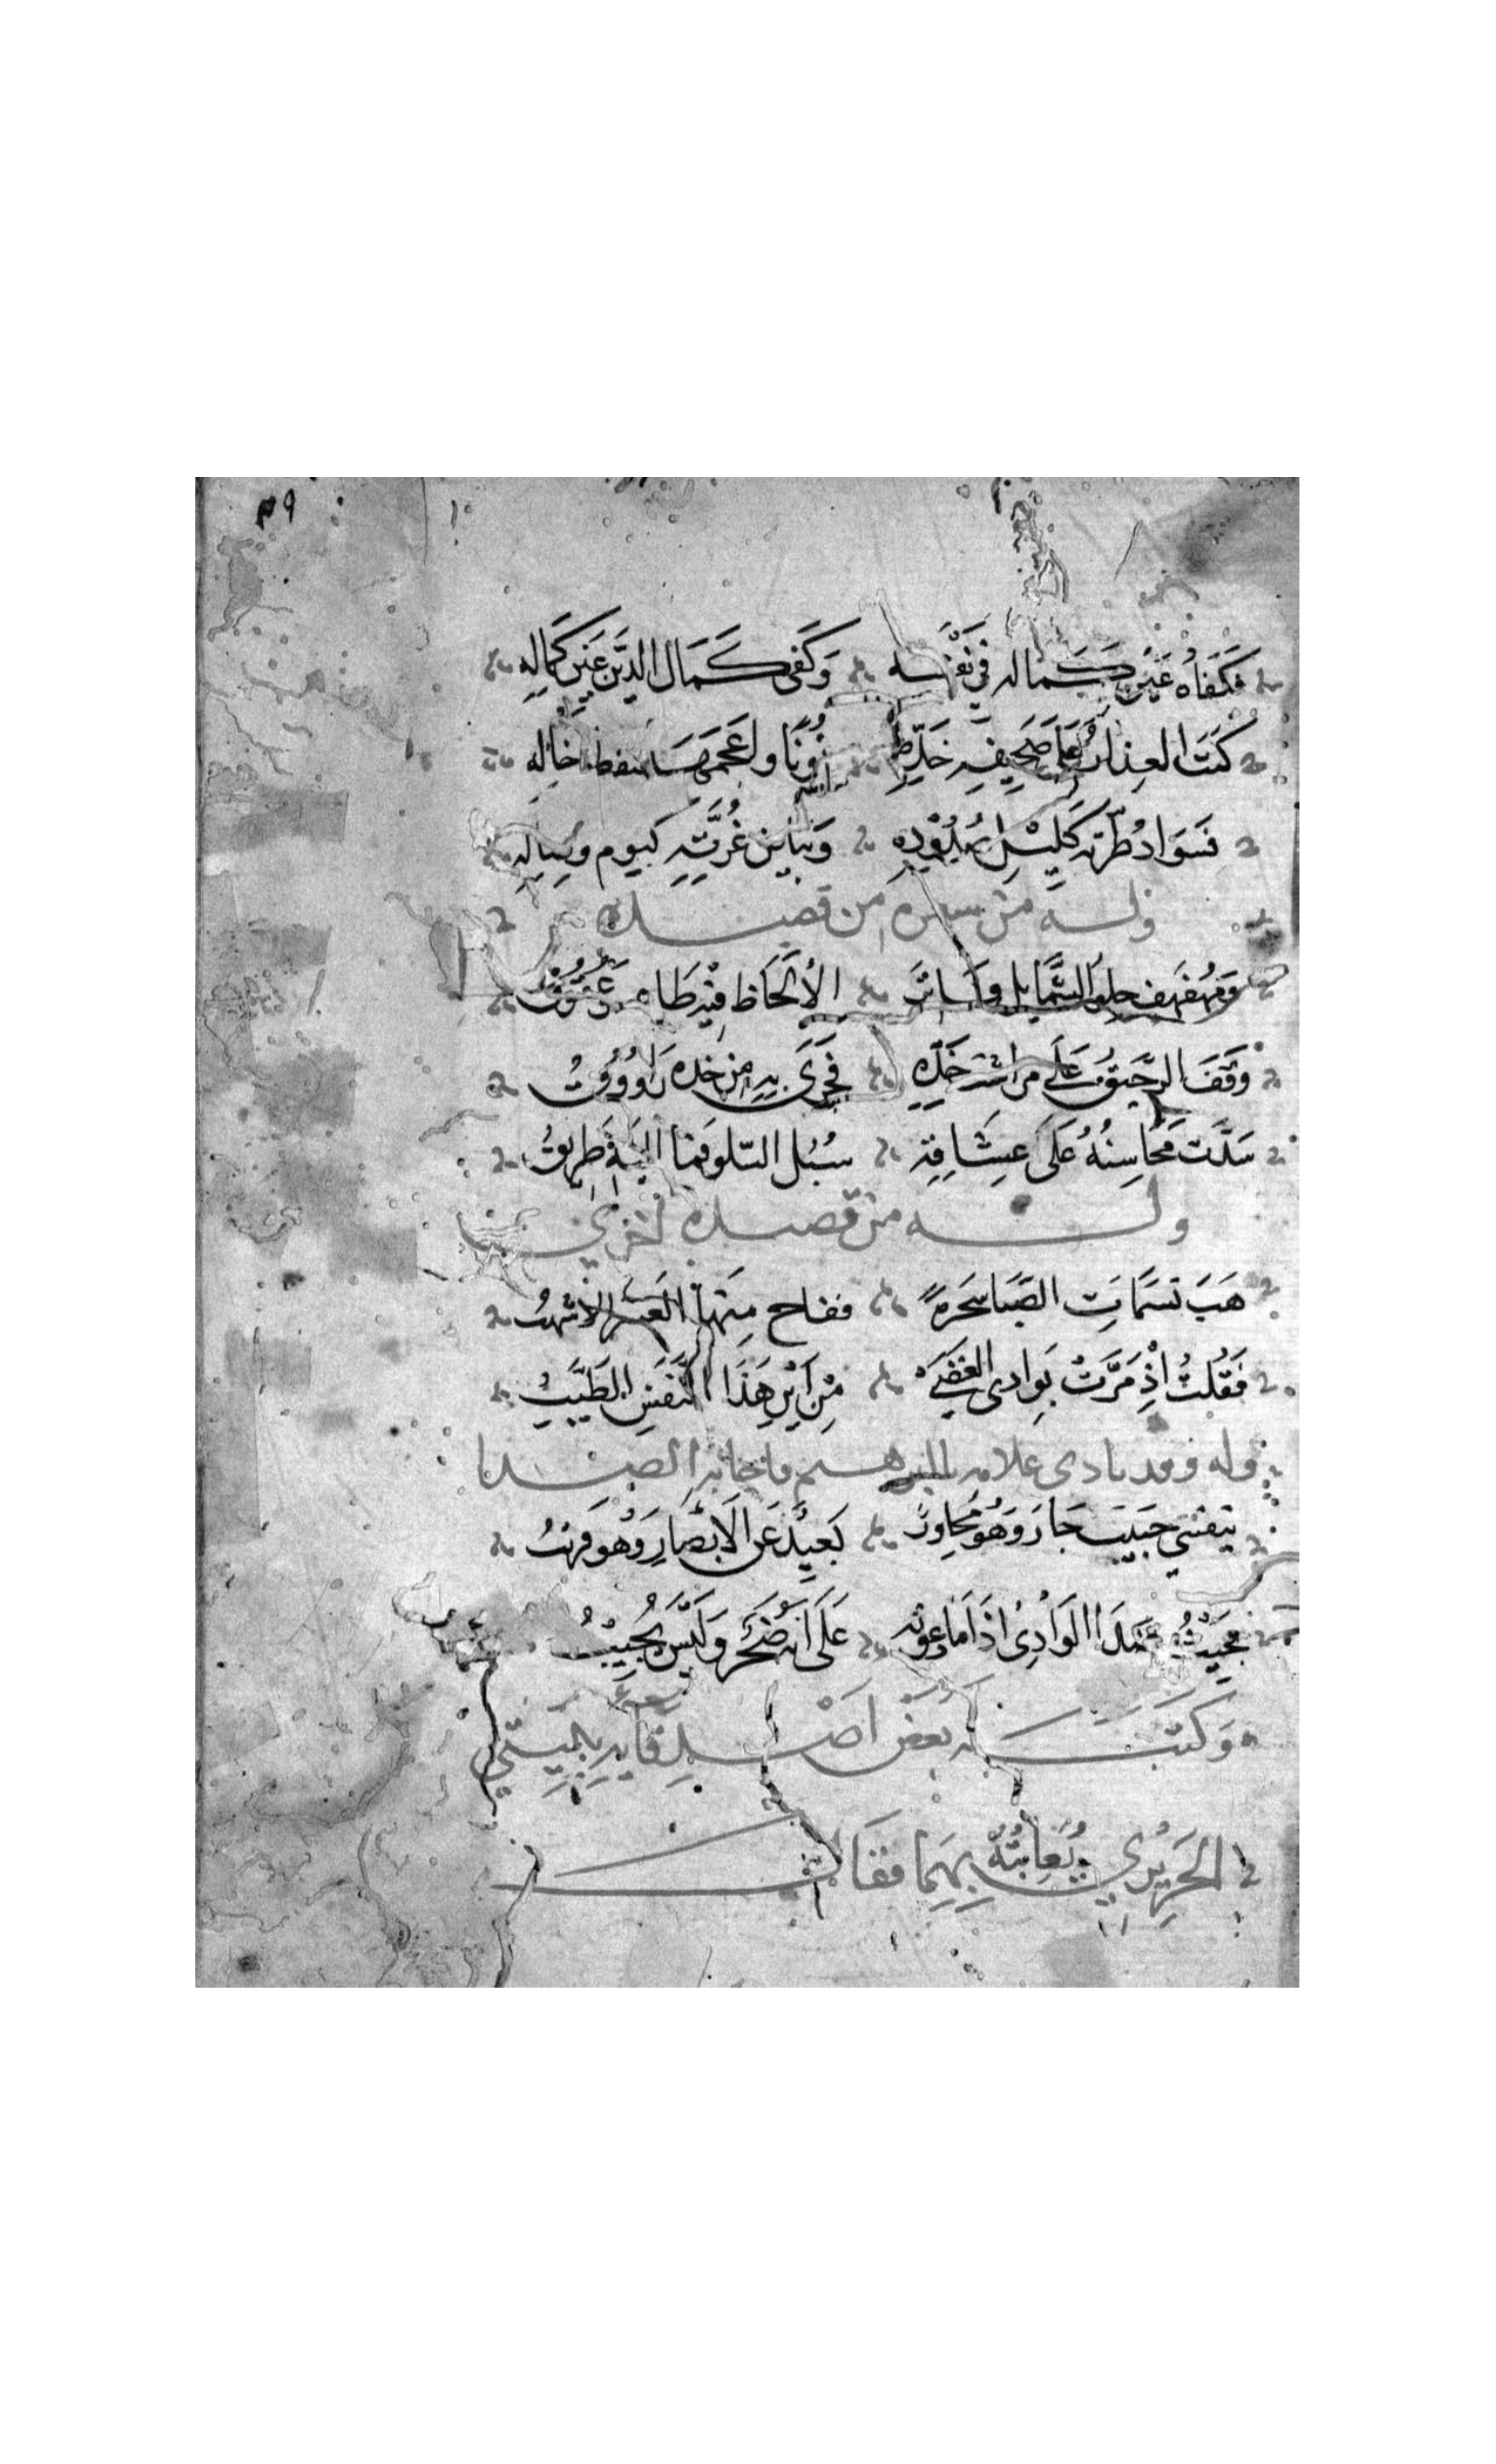 ٣٩
فكفاه عين كماله في نفسه وكفى كمال الدين عين كماله
كتب العذار على صحيفة خده نونا واعجمها بنقطة خاله
فسواد طرته كليل صدوده وبياض غرته كيوم وصاله
وله من قصيده
ومهفهف حلو الشمايل فاتر الألحاظ فيه طاعة وعقوق
وقف الرحيق على مراشف خده فجرى به من خده راووق
سدت محاسنه على عشاقه سبل السلو فما اليه طريق
وله من قصيده اخرى
هب نسمات الصبا سحرة ففاح منها العنبر الاشهب
فقلت إذ مرت بوادي الغضى من اين هذا النفس الطيب
وله وقد نادى غلامه فاجابه الصدا
بنفسي حبيب جار وهو مجاور بعيد عن الابصار وهو قريب
يجيب صدا الوادي اذا ما دعوته على انه صخر وليس يجيب
وكتب له بعض اصدقايه ببيتي
الحريري يعاتبه بهما فقال